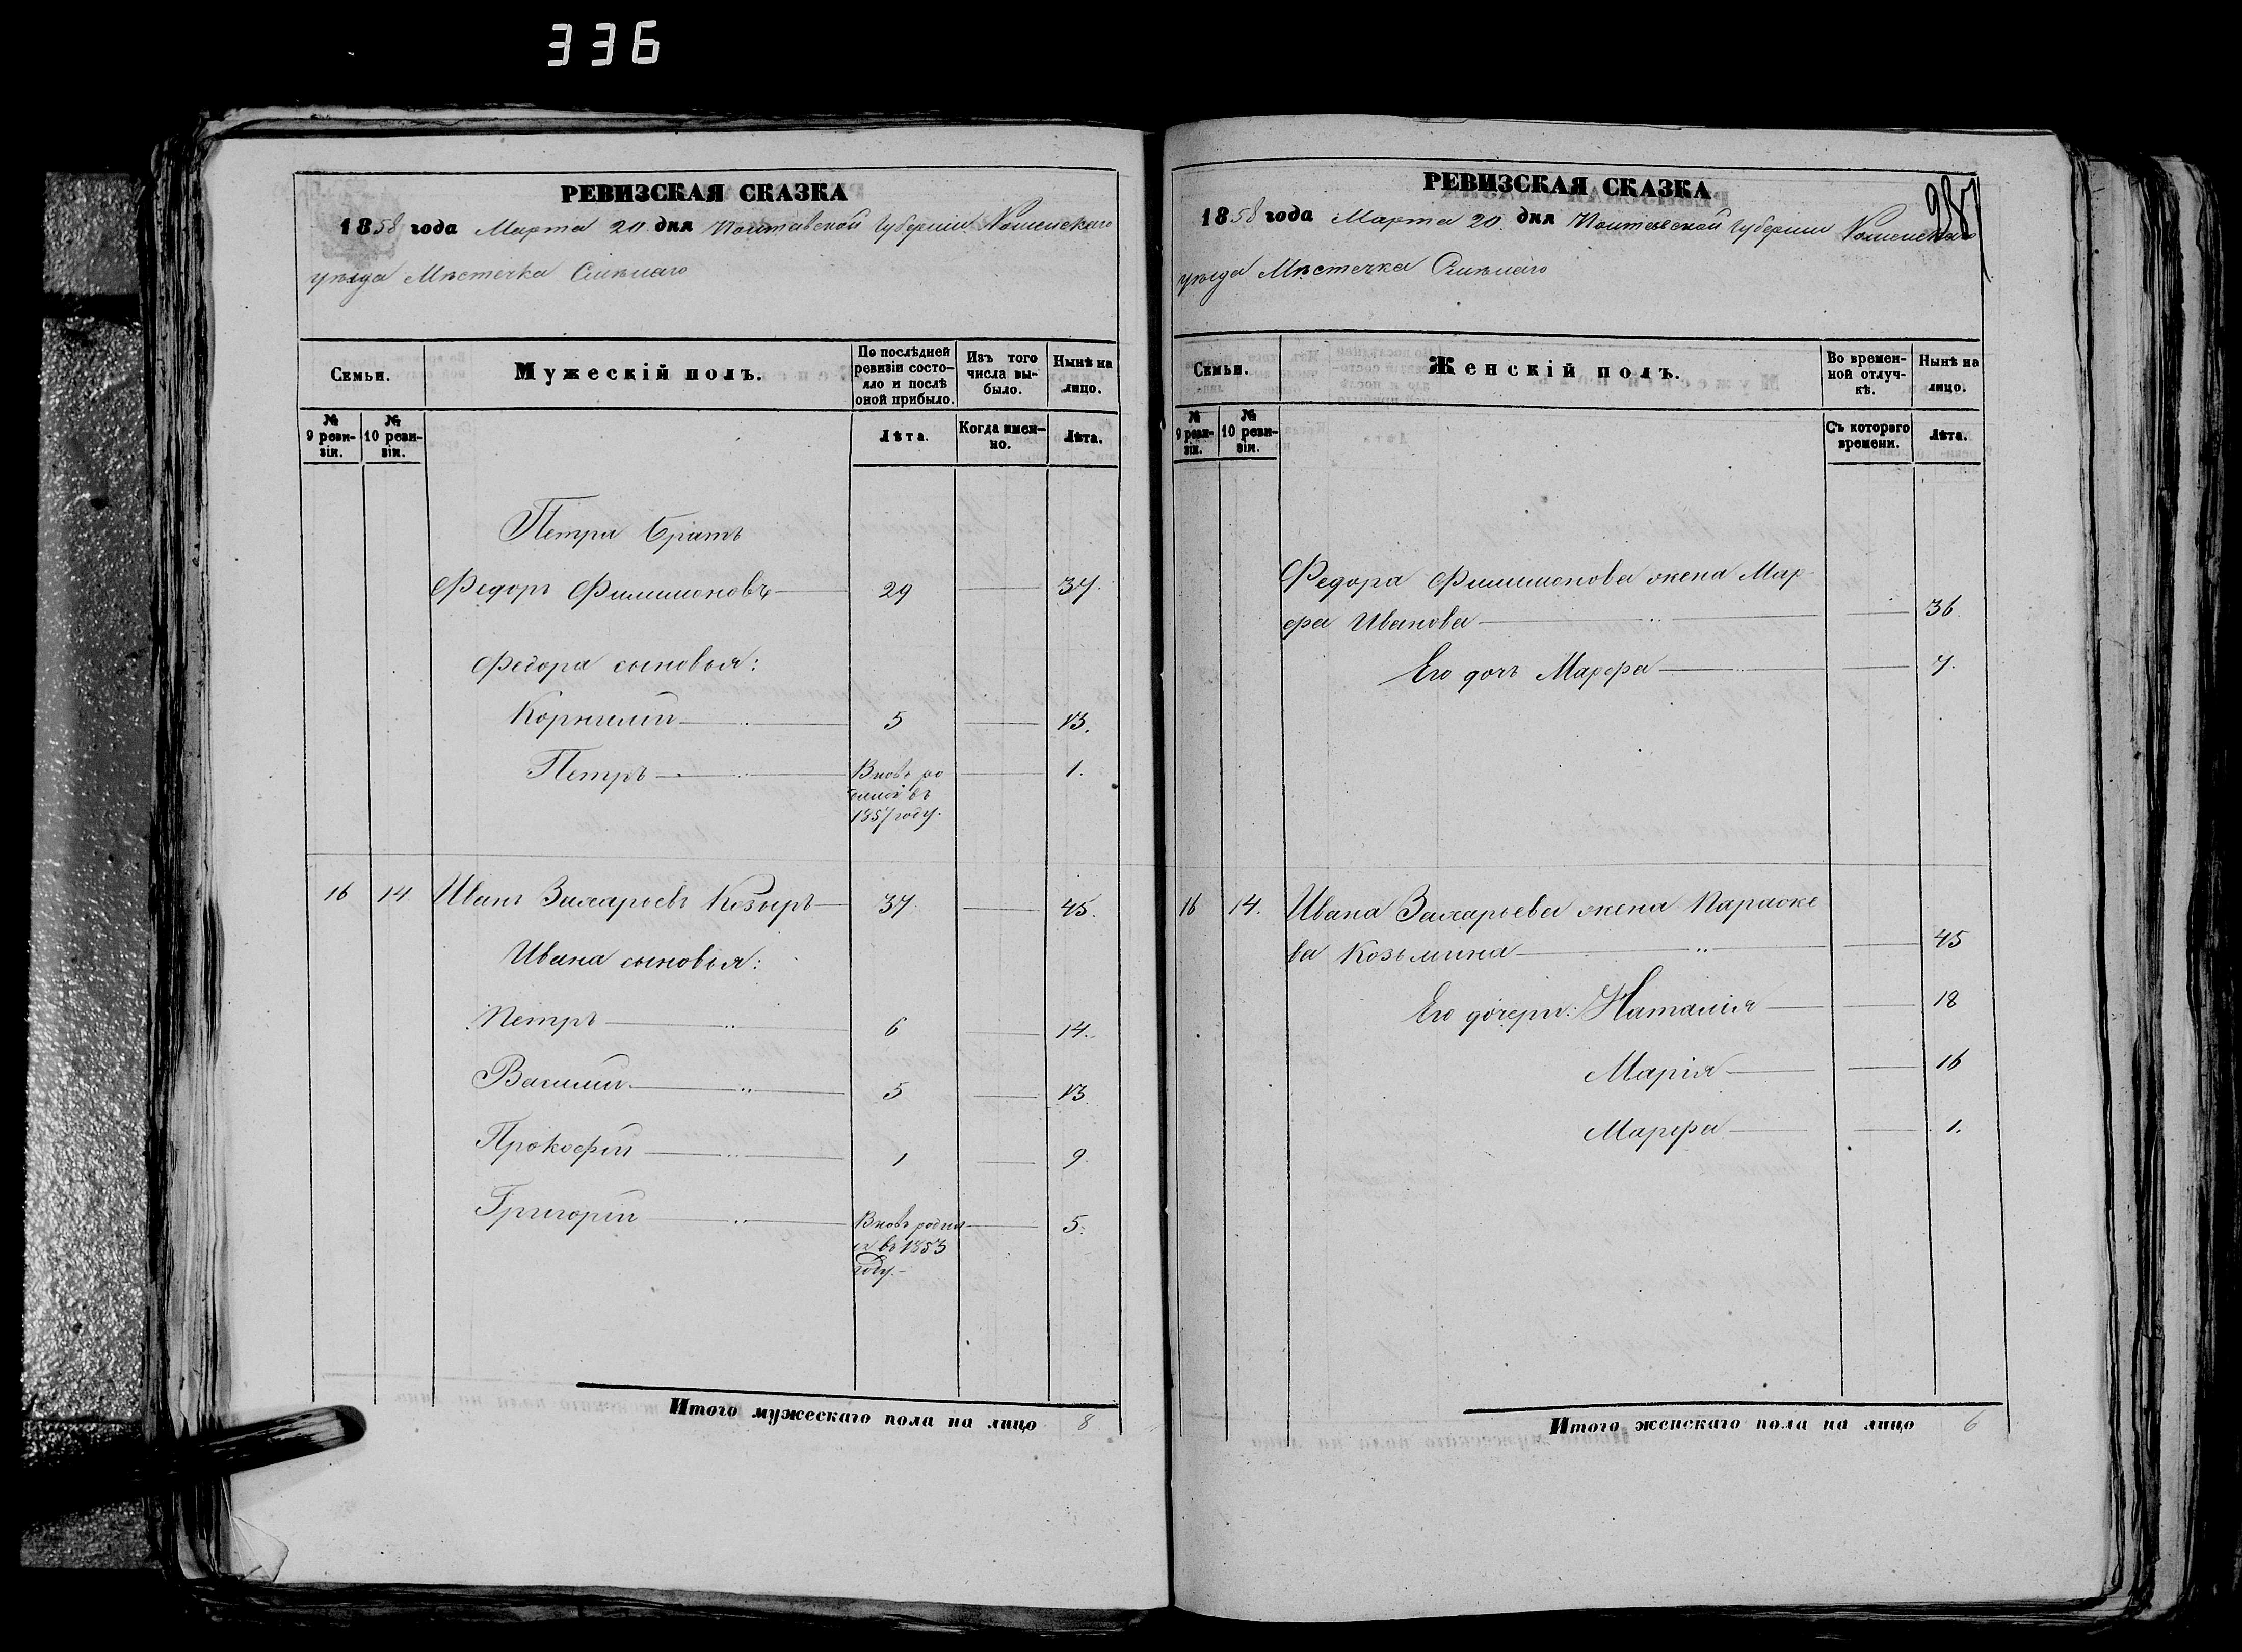 336
РЕВИЗСКАЯ СКАЗКА
1858 года Марта 20 дня Полтавской Губерніи Роменскаго
уѣзда Мѣстечка Смѣлаго
Семьи.
Мужескій полъ.
По послѣдней ревизіи состояло и послѣ оной прибыло.
Изъ того числа выбыло.
Нынѣ на лицо.
№ 9 ревизіи.
№ 10 ревизіи.
Лѣта.
Когда именно.
Лѣта.
Петра братъ
Федоръ Филимоновъ 29 37.
Федора сыновья:
Корнилій 5 13.
Петръ Вновь ро 1.
дился въ
1857 году.
16 14 Иванъ Захарьевъ Козыръ 37 45.
Ивана сыновья:
Петръ 6 14.
Василій 5 13
Прокофій 1 9
Григорій Вновь родил 5.
ся въ 1853
году.
Итого мужескаго пола на лицо 8
РЕВИЗСКАЯ СКАЗКА
1858 года Марта 20 дня Полтавской Губерніи Роменскаго
уѣзда Мѣстечка Смѣлаго
Семьи.
Женскій полъ.
Во времен-
ной отлуч-
кѣ.
Нынѣ на
лицо.
№ 9 реви-
зіи.
№ 10 реви-
зіи.
Съ котораго
времени.
Лѣта.
Федора Филимонова жена Мар
фа Иванова 36.
Его дочь Марфа 7.
16 14. Ивана Захарьева жена Параске
ва Козьмина 45
Его дочери: Наталія 18
Марія 16
Марфа 1.
Итого женскаго пола на лицо 6